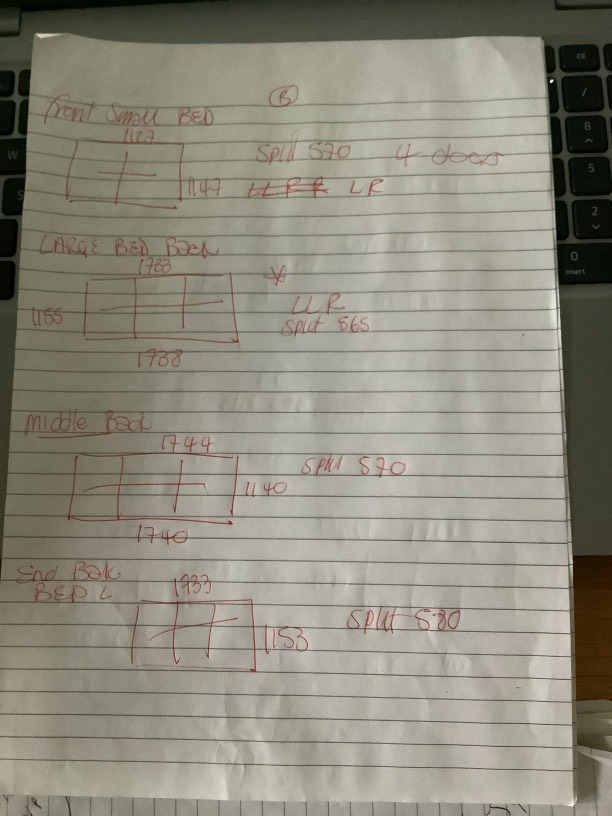 B
Front Small BED
1127
Split 570 4 doors
1147 LR
LARGE BED Back
1733
1155
LLR
Split 565
1738
Middle Back
1744
Split 570
1140
1740
End Back
BED L
1733
1153
Split 580